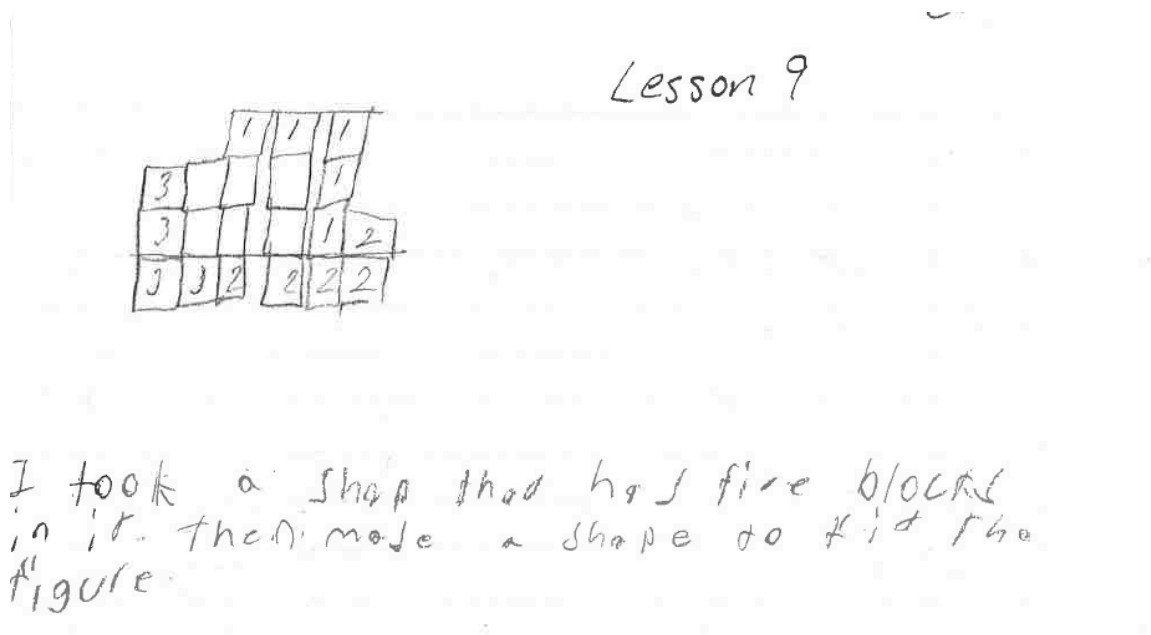 Lesson 9
1 1 1
3 1
3 1 2
3 3 2 2 2 2
I took a shap that has five blocks
in it. then made a shape to fit the
figure.